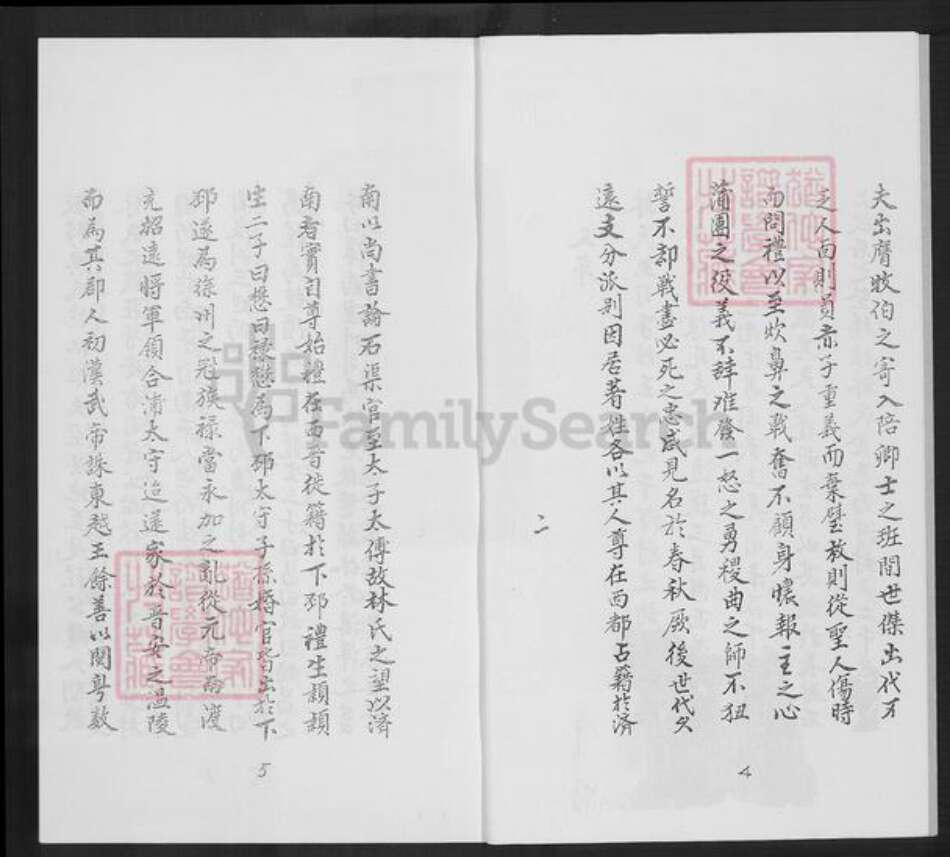 夫出膺牧伯之寄入陪卿士之班間世傑出代不
乏人回則負赤子重義而棄璧放則從聖人傷時
而問禮以至炊鼻之戰奮不顧身懷報主之心
蒲圃之役義不辞难發一怒之勇稷曲之師不狃
誓不卻戰盡必死之忠咸見名於春秋厥後世代久
遠支分派别因居著姓各以其人尊在西都占籍於済
4
二
南以尚書論石渠官至太子太傅故林氏之望以済
南者實自尊始禮在西晋徙籍於下邳禮生頴頴
生二子曰懋曰禄懋為下邳太守子孫婚官皆出於下
邳遂為徐州之冠族禄當永加之亂從元帝南渡
充招遠將軍領合浦太守迨遂家於晋安之温陵
而為其郡人初漢武帝誅東越王餘善以閩粤数
5
FamilySearch